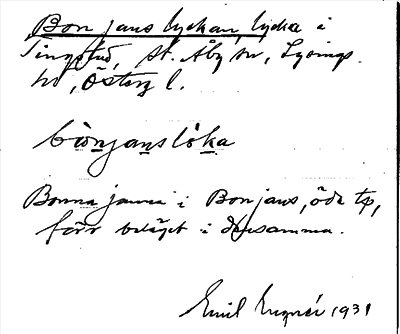 Bon jans lyckan, lycka i
Tingstad, St. Åby sn, Lysings
hd, Österg l.
bònjanslò̀ka
Bonna janna i Bon jans, öde tp,
förr beläget i densamma.
Emil 1931